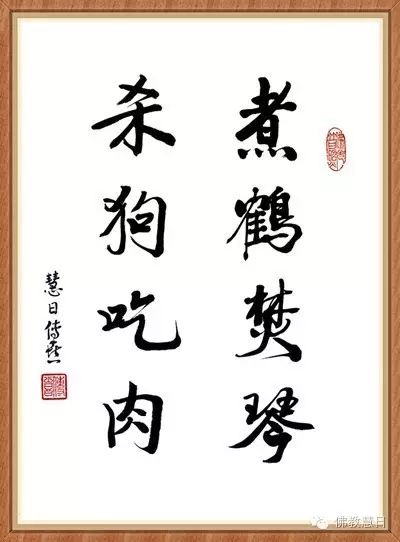 煮鹤焚琴
杀狗吃肉
慧日传喜
佛教慧日